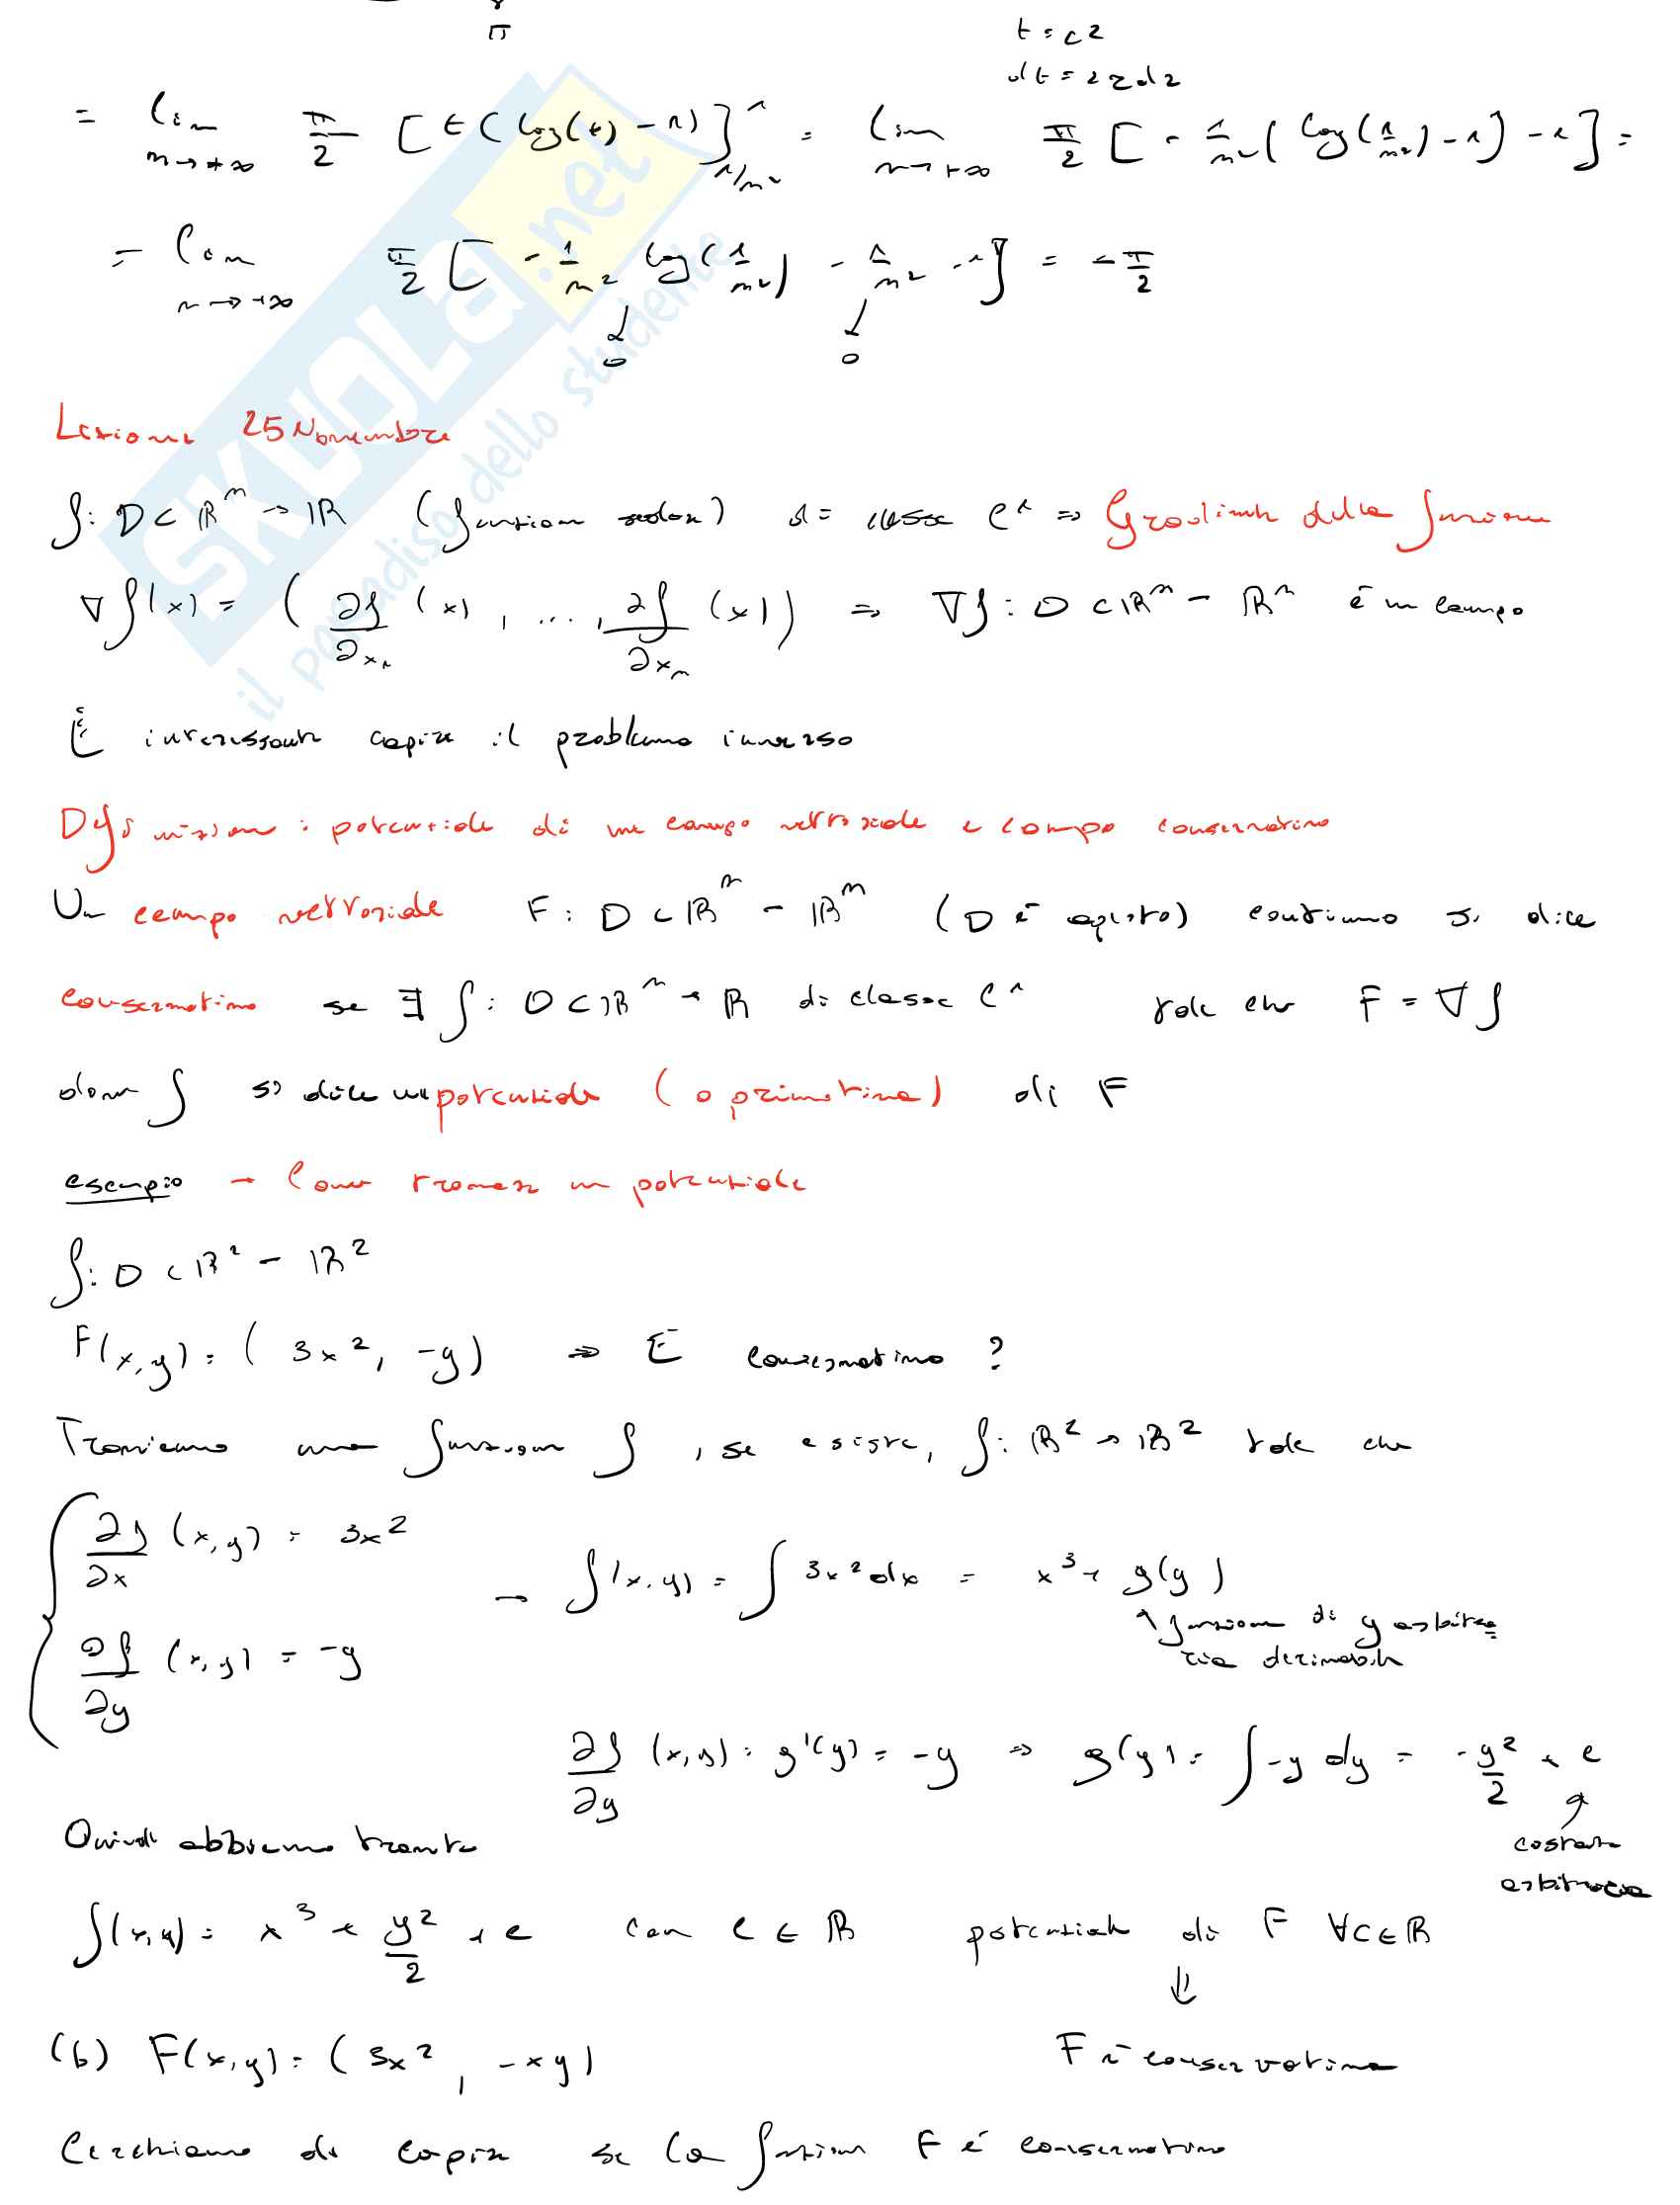 π
t = r²
dt = 2rdr
= lim n→+∞ π/2 [t(log(t) - 1)]¹ 1/n² = lim n→+∞ π/2 [- 1/n² (log(1/n²) - 1) - 1] =
= lim n→+∞ π/2 [- 1/n² log(1/n²) - 1/n² - 1] = - π/2
↓ 0 ↓ 0
SKUOLA.net
il paradiso dello studente
Lezione 25 Novembre
f: D ⊂ ℝⁿ → ℝ (funzione scalare) di classe C¹ ⇒ Gradiente della funzione
∇f(x) = (∂f/∂x₁ (x), ..., ∂f/∂xₙ (x)) ⇒ ∇f: D ⊂ ℝⁿ → ℝⁿ è un campo
È interessante capire il problema inverso
Definizione: potenziale di un campo vettoriale e campo conservativo
Un campo vettoriale F: D ⊂ ℝⁿ → ℝⁿ (D è aperto) continuo si dice
conservativo se ∃ f: D ⊂ ℝⁿ → ℝ di classe C¹ tale che F = ∇f
dove f si dice un potenziale (o primitiva) di F
esempio → Come trovare un potenziale
f: D ⊂ ℝ² → ℝ²
F(x,y) = (3x², -y) ⇒ È conservativo?
Troviamo una funzione f, se esiste, f: ℝ² → ℝ² tale che
{ ∂f/∂x (x,y) = 3x²
→ f(x,y) = ∫ 3x² dx = x³ + g(y)
↑ funzione di y arbitra=
ria derivabile
∂f/∂y (x,y) = -y
∂f/∂y (x,y) = g'(y) = -y ⇒ g(y) = ∫ -y dy = - y²/2 + c
costante
arbitraria
Quindi abbiamo trovato
f(x,y) = x³ + y²/2 + c con c ∈ ℝ potenziale di F ∀c∈ℝ
⇓
(b) F(x,y) = (3x², -xy) F è conservativo
Cerchiamo di capire se la funzione F è conservativo